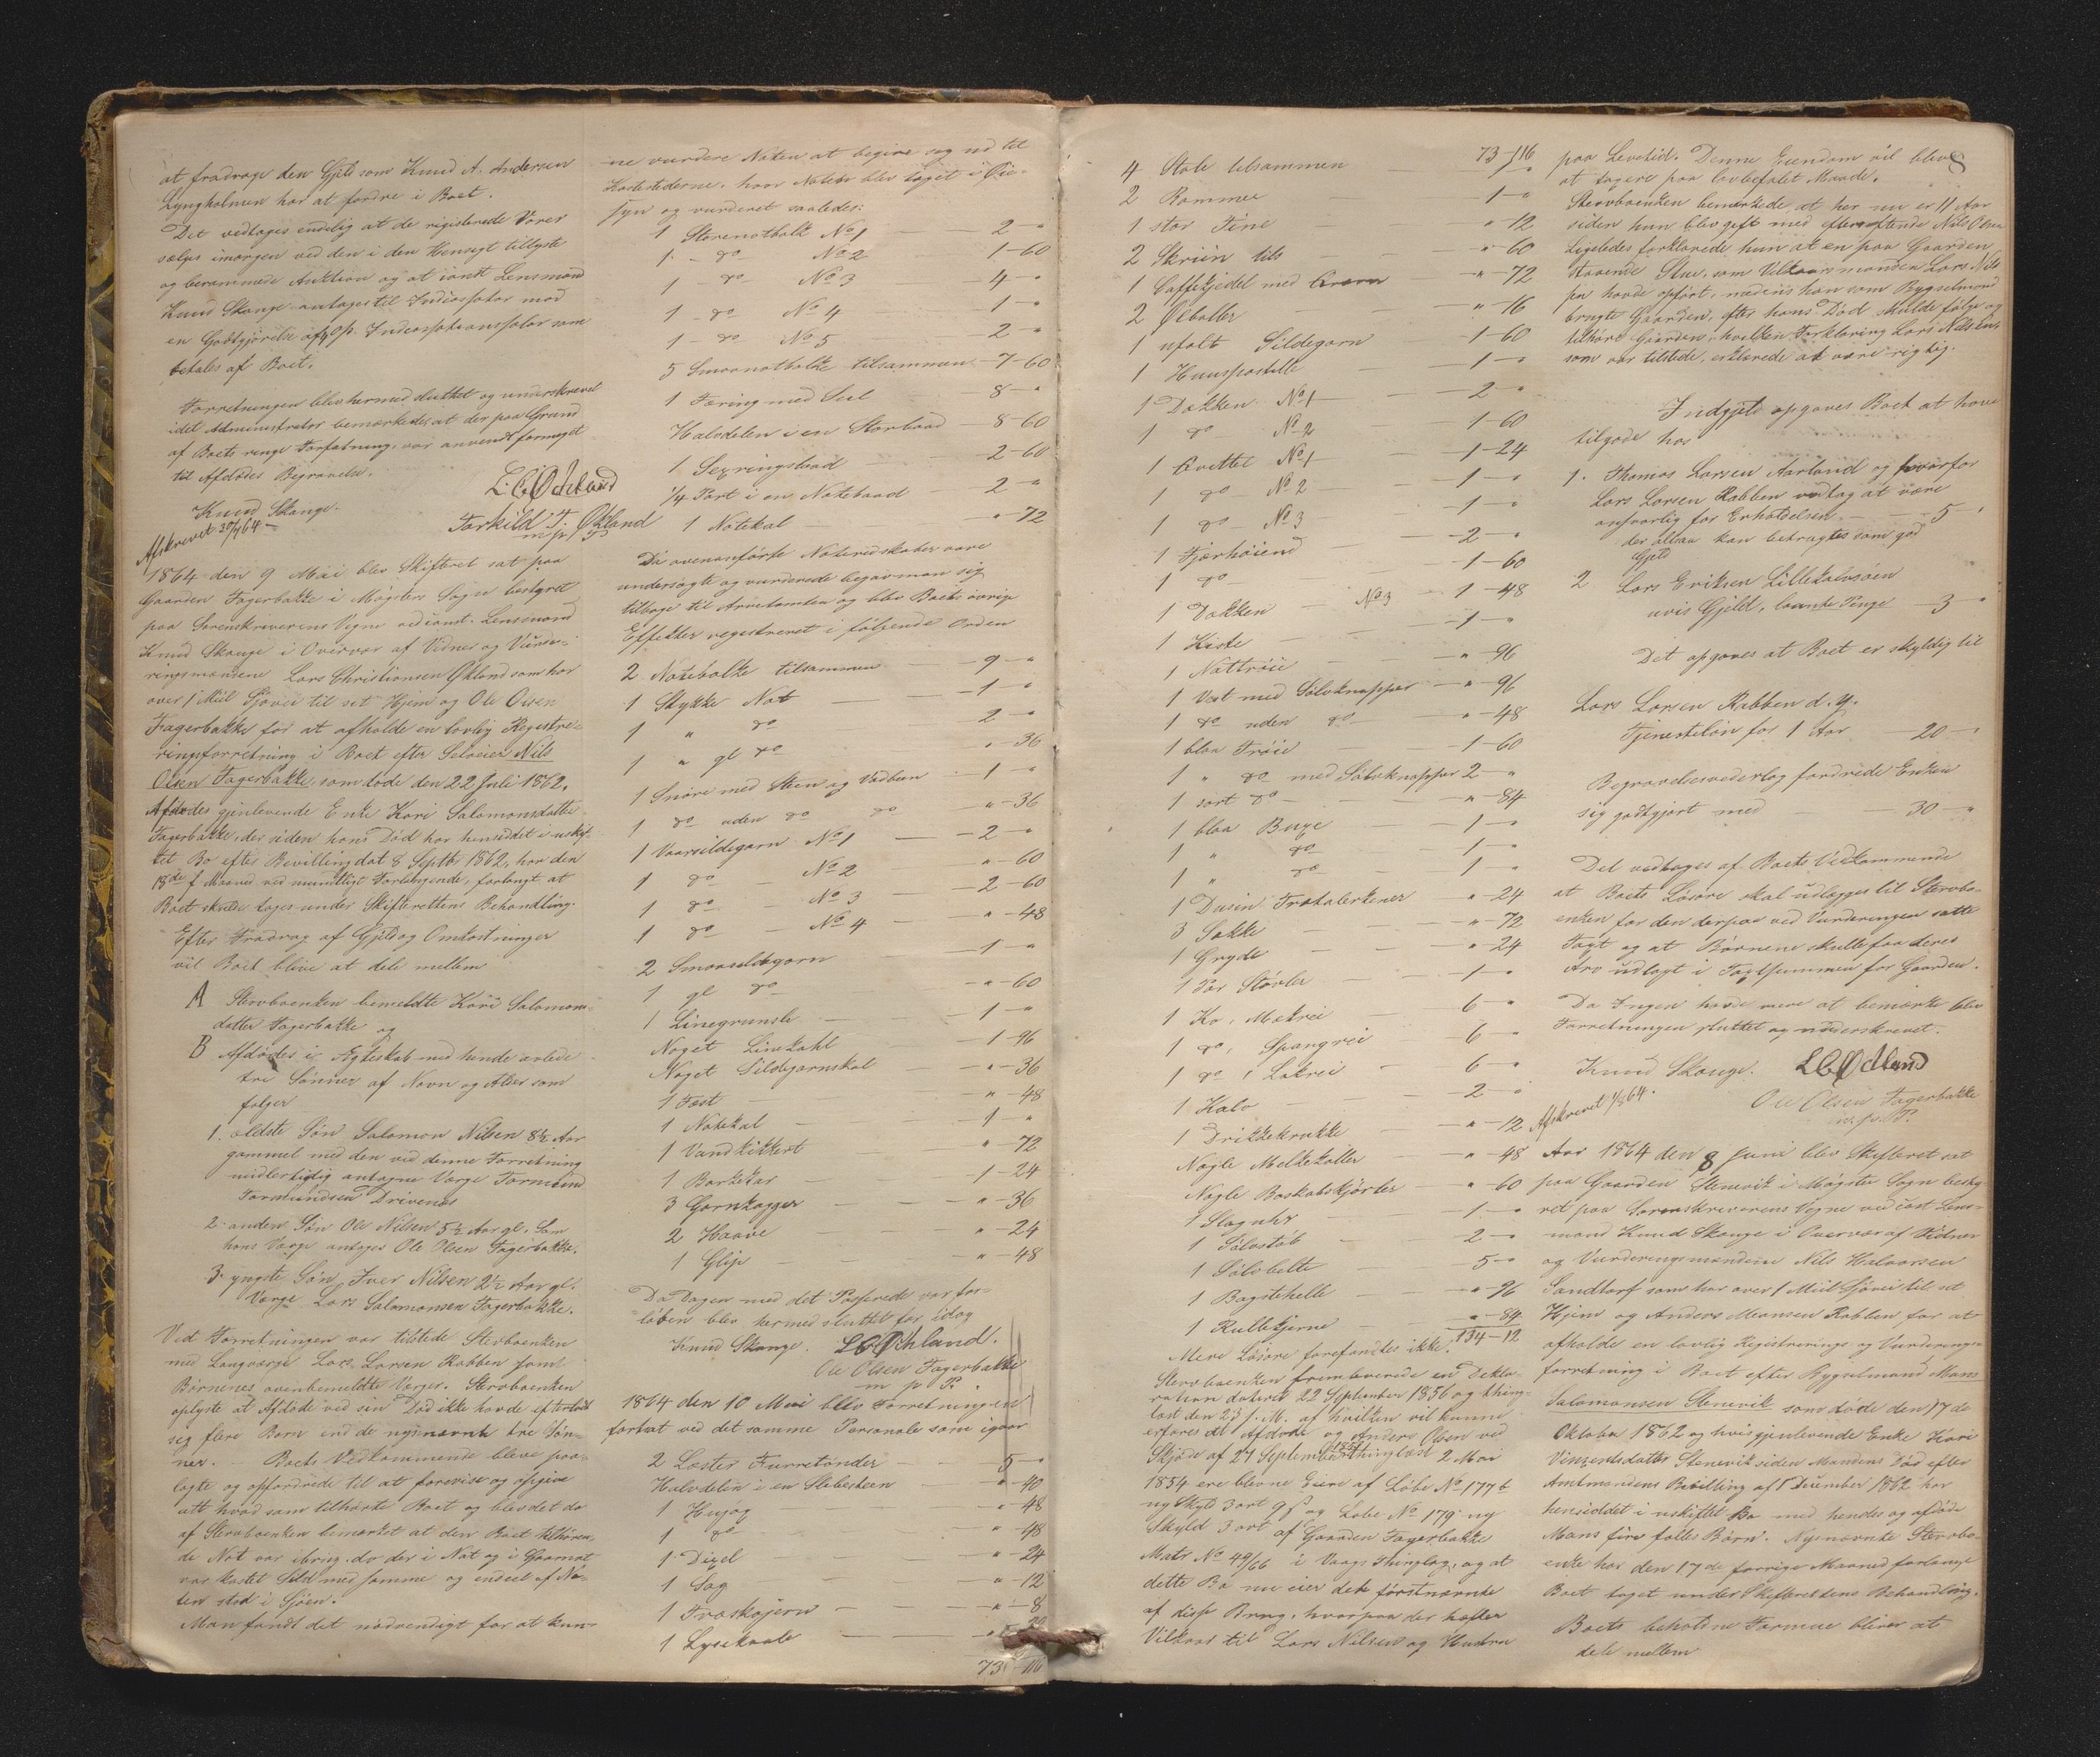 at fradrage den Gjeld som Knud A. Andersen
Lyngholmen har at fordre i Boet.
Det vedtoges endelig at de registerede Varer
sælges imorgen ved den i den Hensegt tillyste
og berammede Auktion og at const. Lensmand
Knud Skange antages til Indcassator mod
en Godtgjörelse af 4 op. Indcassationssalar som
betales af Boet.
Forretningen blev hermed sluttet og underskrevet
idet Administrator bemærkede at der paa Grund
af Boets ringe Forfatning, var anvendt formeget
til Afdødes Begravelse.
L. C. Økland
Knud Skange.
Torkild T. Økland
m. p. P.
Afskrevet 30/7 64
1864 den 9 Mai blev Skifteret sat paa
Gaarden Fagerbakke i Møgster Sogn bestyret
paa Sorenskriverens Vegne ved const. Lensmand
Knud Skange i Overvær af Vidner og Vurde-
ringsmændene Lars Christiansen Økland som har
over 1 Miil Sjövei til sit Hjem og Ole Olsen
Fagerbakke for at afholde en lovlig Registre-
ringsforretning i Boet efter Selveier Nils
Olsen Fagerbakke, som døde den 22 Juli 1862.
Afdødes gjenlevende Enke Kari Salamonsdatter
Fagerbakke, der siden hans Død har hensiddet i uskif-
tet Bo efter Bevilling dat 8 Septbr 1862, har den
18de f. Maaned ved mundtligt Forlangende, forlangt at
Boet skulde tages under Skifterettens Behandling.
Efter Fradrag af Gjeld og Omkostninger
vil Boet blive at dele mellem
A Stervboenken bemeldte Kari Salomons-
datter Fagerbakke og
B Afdødes i Ægteskab med hende avlede
tre Sønner af Navn og Alder som
følger
1. ældste Søn Salamon Nilsen 8½ Aar
gammel med den ved denne Forretning
midlertidig antagne Værge Tormund
Tormundsen Drivenes
2. anden Søn Ole Nilsen 5½ Aar gl. Som
hans Værge antages Ole Olsen Fagerbakke.
3. yngste Søn Iver Nilsen 2½ Aar gl.
Værge Lars Salamonsen Fagerbakke.
Ved Forretningen var tilstede Stervboenken
med Laugværge Lars Larsen Rabben samt
Børnenes ovenbemeldte Værger. Stervboenken
oplyste at Afdøde ved sin Død ikke havde efterladt
sig flere Børn end de nysnævnte tre Søn-
ner. — Boets Vedkommende bleve paa-
lagte og opfordrede til at forevise og opgive
alt hvad som tilhørte Boet og blev det da
af Stervboenken bemærket at den Boet tilhøren-
de Not var i brug, da der i Not og i Garnnot
var kastet Sild med samme og endeel af No-
ten stod i Sjøen.
Man fandt det nødvendigt for at kun-
ne vurdere Noten at begive sig ud til
Kastestederne, hvor Noten blev taget i Øie-
syn og vurderet saaledes:
1 Storenotbolk No 1 — 2 — "
1 — do No 2 — 1 — 60
1 — do No 3 — 4 — "
1 — do No 4 — 1 — "
1 — do No 5 — 2 — "
5 Smaanotbolke tilsammen — 7 — 60
1 Færing med Seil — 8 — "
Halvdelen i en Storbaad — 8 — 60
1 Sexringsbaad — 2 — 60
¼ Part i en Notebaad — 2 — "
1 Notekal — " — 72
Da ovenanførte Noteredskaber vare
undersøgte og vurderede begav man sig
tilbage til Arvetomten og blev Boets øvrige
Effekter registreret i følgende Orden
2 Notebolke tilsammen — 9 — "
1 Stykke Not — 1 — "
1 " do — 2 — "
1 " gl do — " — 36
1 Snøre med Steen og Vadbeen — 1 — "
1 do uden do do — " — 36
1 Vaarsildegarn No 1 — 2 — "
1 do — No 2 — " — 60
1 do — No 3 — 2 — 60
1 do — No 4 — " — 48
2 Smaasildegarn — 1 — "
1 gl do — " — 60
1 Linegrunsle — 1 — "
Noget Linekahl — 1 — 96
Noget Sildgarnskal — " — 36
1 Fæst — " — 48
1 Notekal — 1 — "
1 Vandkikkert — " — 72
1 Barkekar — 1 — 24
3 Garnkagger — " — 36
2 Haave — " — 24
1 Glip — " — 48
Da Dagen med det Passerede var for-
løben blev hermed sluttet for idag
Knud Skange. L. C. Økland.
Ole Olsen Fagerbakke
m p P.
1864 den 10 Mai blev Forretningen
fortsat ved det samme Personale som igaar
2 Læster Furretønder — 5 — "
Halvdelen i en Slibesteen — " — 40
1 Huiøg — " — 48
1 do — " — 48
1 Dixel — " — 24
1 Sag — " — 12
1 Traskjern — " — 8
1 Lysekaale — " — 20
73 — 116
73 — 116
4 Stole tilsammen — 1 — "
2 Rammer — 1 — "
1 stor Tine — " — 12
2 Skriin tils — " — 60
1 Caffekjedel med Qværn — " — 72
2 Ølboller — " — 16
1 ufalt Sildegarn — 1 — 60
1 Huuspostille — 1 — "
1 Dækken No 1 — 2 — "
1 do No 2 — 1 — 60
1 Qvittel No 1 — 1 — 24
1 do No 2 — 1 — "
1 do — No 3 — 1 — "
1 Fjærhøiend — 2 — "
1 do — 1 — 60
1 Dækken — No 3 — 1 — 48
1 Kiste — 1 — "
1 Nattrøie — " — 96
1 Vest med Sølvknapper — " — 96
1 do uden do — " — 48
1 blaa Trøie — 1 — 60
1 " do med Sølvknapper 2 — "
1 sort do — " — 84
1 blaa Buxe — 1 — "
1 " do — 1 — "
1 " do — 1 — "
1 Dusin Trætalerkener — " — 24
3 Sække — " — 72
1 Gryde — " — 24
1 Par Støvler — 1 — "
1 Ko, Mækrei — 6 — "
1 do, Spangrei — 6 — "
1 do, Lakrei — 6 — "
1 Kalv — 2 — "
1 Drikkekrukke — " — 12
Nogle Melkekoller — " — 48
Nogle Boskabskjørler — " — 60
1 Slaguhr — 1 — "
1 Sølvstøb — 2 — "
1 Sølvbelte — 5 — "
1 Bagstehelle — " — 96
1 Rullekjerne — " — 84
134 — 12
Mere Løsøre forefandtes ikke.
Stervboenken fremleverede en Dekla-
ration dateret 22 September 1856 og thing-
læst den 23 s. M. af hvilken vil kunne
erfares at Afdøde og Anders Olsen ved
Skjøde af 27 September 1853 thinglæst 2 Mai
1854 ere blevne Eiere af Løbe No 177 b
ny Skyld 3 ort 9 ß og Løbe No 179 ny
Skyld 3 ort af Gaarden Fagerbakke
Matr. No 49/66 i Vaags Thinglag, og at
dette Bo nu eier det førstnævnte
af disse Brug, hvorpaa der hæfter
Vilkaar til Lars Nilsen og Hustru
8
paa Levetid. Denne Eiendom vil blive
at taxere paa lovbefalet Maade.
Stervboenken bemærkede at her nu er 11 Aar
siden hun blev gift med efterafdøde Nils Olsen
Ligeledes forklarede hun at en paa Gaarden
staaende Stue, som Vilkaarsmanden Lars Nils-
sen havde opført, medens han som Bygselmand
brugte Gaarden, efter hans Død skulde følge og
tilhøre Gaarden, hvilken Forklaring Lars Nilsen,
som var tilstede, erklærede at være rigtig.
Indgjeld opgaves Boet at have
tilgode hos
1. Thomas Larsen Aarland og hvorfor
Lars Larsen Rabben vedtog at være
ansvarlig for Erholdelsen — 5 — "
der altsaa kan betragtes som god
Gjeld
2. Lars Eriksen Lillekalvsøen
uvis Gjeld, laante Penge — 3 — "
Det opgaves at Boet er skyldig til
Lars Larsen Rabben d. y.
Tjenesteløn for 1 Aar — 20 — "
Begravelsesvederlag fordrede Enken
sig godtgjort med — 30 — "
Det vedtoges af Boets Vedkommende
at Boets Løsøre skal udlægges til Stervbo-
enken for den derpaa ved Vurderingen satte
Taxt og at Børnene skulle faa deres
Arv udlagt i Taxtsummen for Gaarden.
Da Ingen havde mere at bemærke blev
Forretningen sluttet og underskrevet.
Knud Skange. L. C. Økland
Ole Olsen Fagerbakke
m. p. P.
Afskrevet 1/8 64.
Aar 1864 den 8 Juni blev Skifteret sat
paa Gaarden Stenevik i Møgster Sogn besty-
ret paa Sorenskriverens Vegne ved const Lens-
mand Knud Skange i Overvær af Vidner
og Vurderingsmændene Nils Halvorsen
Sandtorf som har over 1 Miil Sjövei til sit
Hjem og Anders Monsen Rabben for at
afholde en lovlig Registrerings og Vurderings-
forretning i Boet efter Bygselmand Mons
Salamonsen Stenevik som døde den 17de
Oktober 1862 og hvis gjenlevende Enke Kari
Vinzentsdatter Stenevik siden Mandens Død efter
Amtmandens Bevilling af 1 December 1862 har
hensiddet i uskiftet Bo med hendes og afdøde
Mons fire fælles Børn. Nysnævnte Stervbo-
enke har den 17de forrige Maaned forlangt
Boet taget under Skifterettens Behandling.
Boets beholdne Formue bliver at
dele mellem